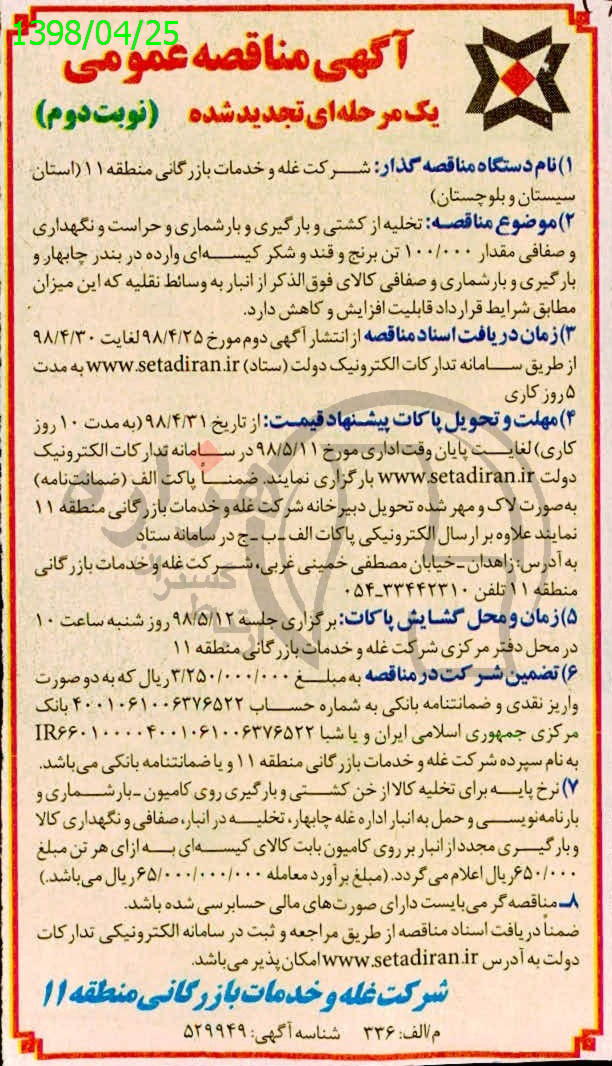 1398/04/25
آگهی مناقصه عمومی
یک مرحله‌ای تجدید شده (نوبت دوم)
۱) نام دستگاه مناقصه گذار: شرکت غله و خدمات بازرگانی منطقه ۱۱ (استان
سیستان و بلوچستان)
۲) موضوع مناقصه: تخلیه از کشتی و بارگیری و بارشماری و حراست و نگهداری
و صفافی مقدار ۱۰۰/۰۰۰ تن برنج و قند و شکر کیسه‌ای وارده در بندر چابهار و
بارگیری و بارشماری و صفافی کالای فوق‌الذکر از انبار به وسائط نقلیه که این میزان
مطابق شرایط قرارداد قابلیت افزایش و کاهش دارد.
۳) زمان دریافت اسناد مناقصه از انتشار آگهی دوم مورخ ۹۸/۴/۲۵ لغایت ۹۸/۴/۳۰
از طریق سامانه تدارکات الکترونیک دولت (ستاد) www.setadiran.ir به مدت
۵ روز کاری
۴) مهلت و تحویل پاکات پیشنهاد قیمت: از تاریخ ۹۸/۴/۳۱ (به مدت ۱۰ روز
کاری) لغایت پایان وقت اداری مورخ ۹۸/۵/۱۱ در سامانه تدارکات الکترونیک
دولت www.setadiran.ir بارگزاری نمایند. ضمناً پاکت الف (ضمانت‌نامه)
به‌صورت لاک و مهر شده تحویل دبیرخانه شرکت غله و خدمات بازرگانی منطقه ۱۱
نمایند علاوه بر ارسال الکترونیکی پاکات الف ـ ب ـ ج در سامانه ستاد
به آدرس: زاهدان ـ خیابان مصطفی خمینی غربی، شرکت غله و خدمات بازرگانی
منطقه ۱۱ تلفن ۳۳۴۴۲۳۱۰ـ۰۵۴
۵) زمان و محل گشایش پاکات: برگزاری جلسه ۹۸/۵/۱۲ روز شنبه ساعت ۱۰
در محل دفتر مرکزی شرکت غله و خدمات بازرگانی منطقه ۱۱
۶) تضمین شرکت در مناقصه به مبلغ ۳/۲۵۰/۰۰۰/۰۰۰ ریال که به دو صورت
واریز نقدی و ضمانتنامه بانکی به شماره حساب ۴۰۰۱۰۶۱۰۰۶۳۷۶۵۲۲ بانک
مرکزی جمهوری اسلامی ایران و یا شبا IR۶۶۰۱۰۰۰۰۴۰۰۱۰۶۱۰۰۶۳۷۶۵۲۲
به نام سپرده شرکت غله و خدمات بازرگانی منطقه ۱۱ و یا ضمانتنامه بانکی می‌باشد.
۷) نرخ پایه برای تخلیه کالا از خن کشتی و بارگیری روی کامیون ـ بارشماری و
بارنامه‌نویسی و حمل به انبار اداره غله چابهار، تخلیه در انبار، صفافی و نگهداری کالا
و بارگیری مجدد از انبار بر روی کامیون بابت کالای کیسه‌ای به ازای هر تن مبلغ
۶۵۰/۰۰۰ ریال اعلام می گردد. (مبلغ برآورد معامله ۶۵/۰۰۰/۰۰۰/۰۰۰ ریال می‌باشد.)
۸ـ مناقصه‌گر می‌بایست دارای صورت‌های مالی حسابرسی شده باشد.
ضمناً دریافت اسناد مناقصه از طریق مراجعه و ثبت در سامانه الکترونیکی تدارکات
دولت به آدرس www.setadiran.ir امکان‌پذیر می‌باشد.
شرکت غله و خدمات بازرگانی منطقه ۱۱
م/الف: ۳۳۶ شناسه آگهی: ۵۲۹۹۴۹